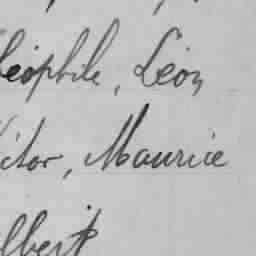 éophile, Léon
ictor, Maurice
lbert